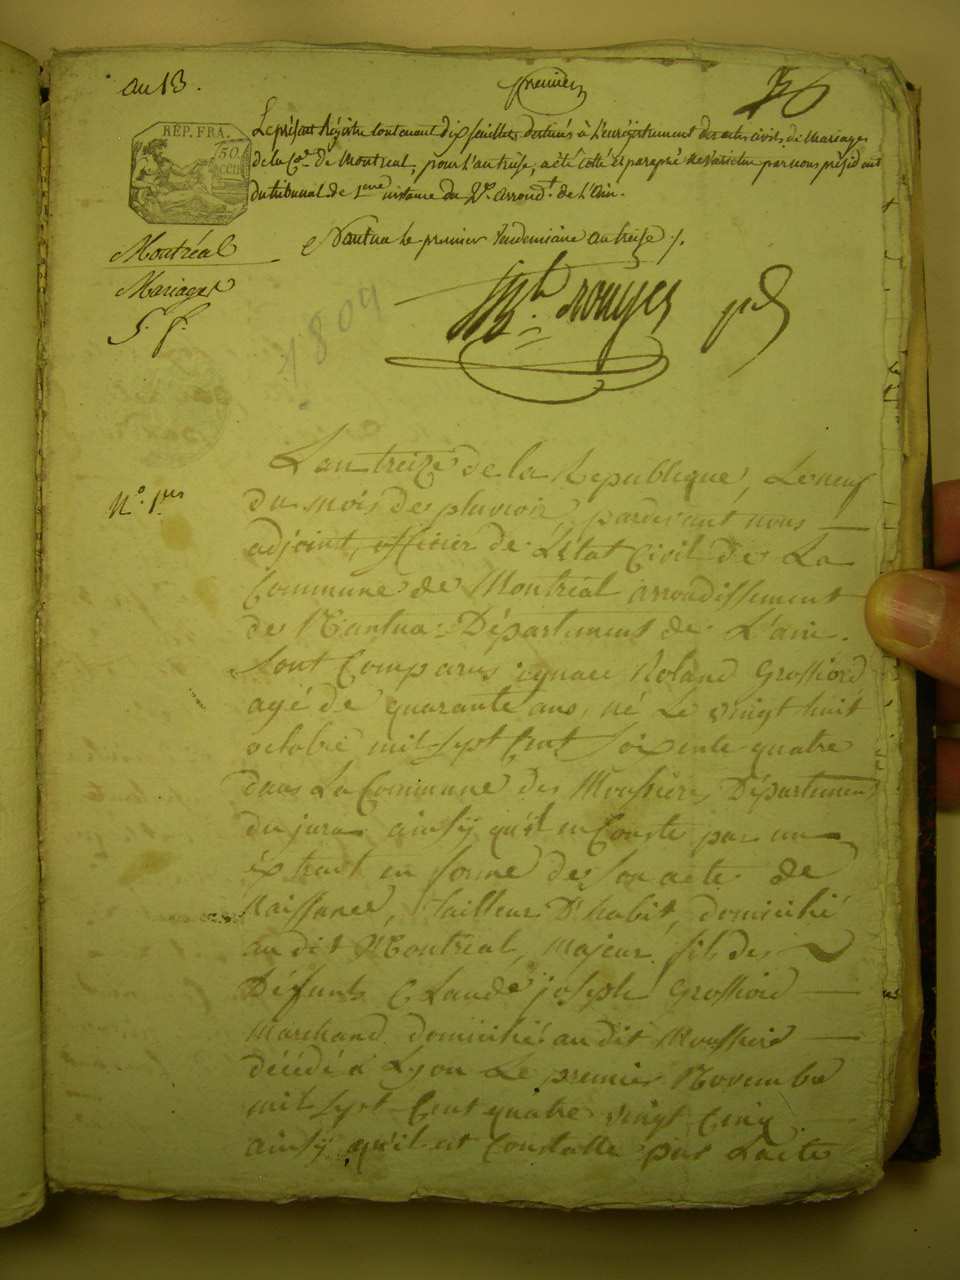 an 13.
premier
RÉP. FRA.
50.
cen
Le présent Registre contenant dix feuillets destinés à l'enregistrement des actes civils de Mariages
de la Cne. de Montreal, pour l'an treize, a été cotté et paraphé ne varietur par nous président
du tribunal de 1ere instance du 4e. arrondt. de l'Ain.
Nantua le premier Vendemiaire an treize ./.
Montréal
Mariages
5. f.
1804
N.o 1ers
L'an treize de la Republique, Le neuf
du mois de pluviose, pardevant nous
adjoint, officier de L'état Civil de La
Commune de Montréal arrondissement
de Nantua Département de L'ain.
Sont Comparus ignace Roland Grossiord
agé de quarante ans, né Le vingt huit
octobre mil sept Cent Soixente quatre
dans La Commune des Moussieres Département
du jura ainsÿ qu'il en Conste par un
éxtrait en forme de Son acte de
Naissance, Tailleur D'habit, domicilié
au dit Montréal, majeur, fils de
Défunts Claude joseph Grossiord
Marchand domicilié au dit Moussiere
décédé à Lyon Le premier Novembre
mil sept Cent quatre vingt Cinq
ainsÿ qu'il est Constatte par L'acte